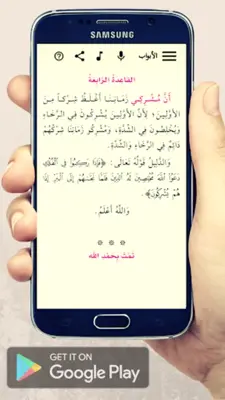 SAMSUNG
الأبواب
القاعدة الرابعة
أَنَّ مُشْرِكِي زَمَانِنَا أَغْلَظُ شِرْكاً مِنَ
الأَوَّلِينَ؛ لِأَنَّ الأَوَّلِينَ يُشْرِكُونَ فِي الرَّخَاءِ
وَيُخْلِصُونَ فِي الشِّدَّةِ، وَمُشْرِكُو زَمَانِنَا شِرْكُهُمْ
دَائِمٌ فِي الرَّخَاءِ وَالشِّدَّةِ.
وَالدَّلِيلُ قَوْلُهُ تَعَالَى: ﴿فَإِذَا رَكِبُوا فِي الْفُلْكِ
دَعَوُا اللَّهَ مُخْلِصِينَ لَهُ الدِّينَ فَلَمَّا نَجَّاهُمْ إِلَى الْبَرِّ إِذَا
هُمْ يُشْرِكُونَ﴾.
وَاللَّهُ أَعْلَمُ.
تَمَّتْ بِحَمْدِ الله
GET IT ON
Google Play